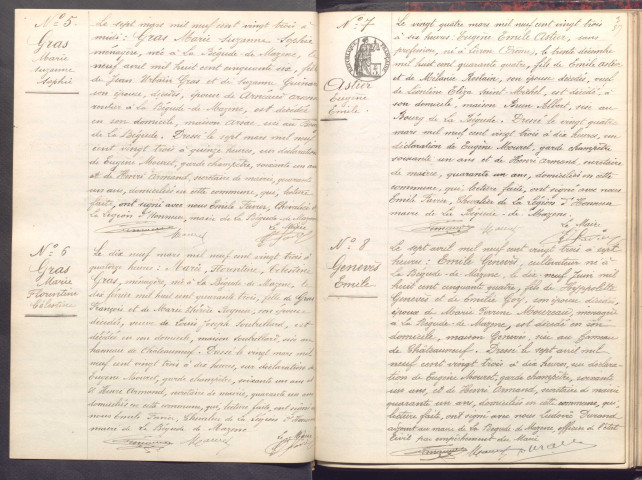 N° 5.
Gras
Marie
Suzanne
Sophie
Le sept mars mil neuf cent vingt trois à
midi: Gras Marie Suzanne Sophie
ménagère, née à La Bégude de Mazenc, le
neuf avril mil huit cent cinquante six, fille
de Jean Urbain Gras et de Suzanne
son épouse, décédés, épouse de
rentier à La Bégude de Mazenc, est décédée
en son domicile, maison sise au Bourg
de La Bégude. Dressé le sept mars mil neuf
cent vingt trois à quinze heures, sur déclaration
de Eugène Mouret, garde champêtre, soixante un ans
et de Henri Armand, secrétaire de mairie, quarante
un ans, domiciliés en cette commune, qui, lecture
faite, ont signé avec nous Emile Favre, Chevalier de
la Légion d'Honneur, maire de La Bégude de Mazenc
Le Maire
N° 6
Gras
Marie
Florentine
Célestine
Le dix neuf mars mil neuf cent vingt trois à
quatorze heures: Marie, Florentine, Célestine
Gras, ménagère, née à La Bégude de Mazenc, le
dix février mil huit cent quarante trois, fille de Gras
François et de Marie Thérèse son épouse
décédés, veuve de Louis Joseph Soubeyrand, est
décédée en son domicile, maison Soubeyrand, sise au
hameau de Châteauneuf. Dressé le vingt mars mil
neuf cent vingt trois à dix heures, sur déclaration de
Eugène Mouret, garde champêtre, soixante un ans et
d'Henri Armand, secrétaire de mairie, quarante un ans
domiciliés en cette commune, qui, lecture faite, ont signé avec
nous Emile Favre, Chevalier de la Légion d'Honneur
maire de La Bégude de Mazenc
Le Maire
N° 7
Astier
Eugène
Emile.
Le vingt quatre mars mil neuf cent vingt trois
à six heures: Eugène Emile Astier, sans
profession, né à (Drôme), le trente décembre
mil huit cent quarante quatre, fils de Emile Astier
et de Mélanie son épouse décédés, veuf
de Eliza Saint-Martel, est décédé, à
son domicile, maison sise au
Bourg de La Bégude. Dressé le vingt quatre
mars mil neuf cent vingt trois à dix heures, sur
déclaration de Eugène Mouret, garde champêtre
soixante un ans et de Henri Armand, secrétaire
de mairie, quarante un ans, domiciliés en cette
commune, qui, lecture faite, ont signé avec nous
Emile Favre, Chevalier de la Légion d'Honneur
maire de La Bégude de Mazenc.
Le Maire
N° 8
Genevès
Emile
Le sept avril mil neuf cent vingt trois à sept
heures: Emile Genevès, cultivateur né à
La Bégude de Mazenc, le dix neuf juin mil
huit cent cinquante quatre, fils de Hyppolite
Genevès et de Emilie Goy, son épouse décédés,
époux de Marie Perrine ménagère
à La Bégude de Mazenc, est décédé en son
domicile, maison Genevès, sise au hameau
de Châteauneuf. Dressé le sept avril mil
neuf cent vingt trois à dix heures, sur déclaration
de Eugène Mouret, garde champêtre, soixante
un ans, et de Henri Armand, secrétaire de mairie
quarante un ans, domiciliés en cette commune, qui,
lecture faite, ont signé avec nous Ludovic Durand
adjoint au maire de La Bégude de Mazenc, officier de l'état
civil par empêchement du Maire